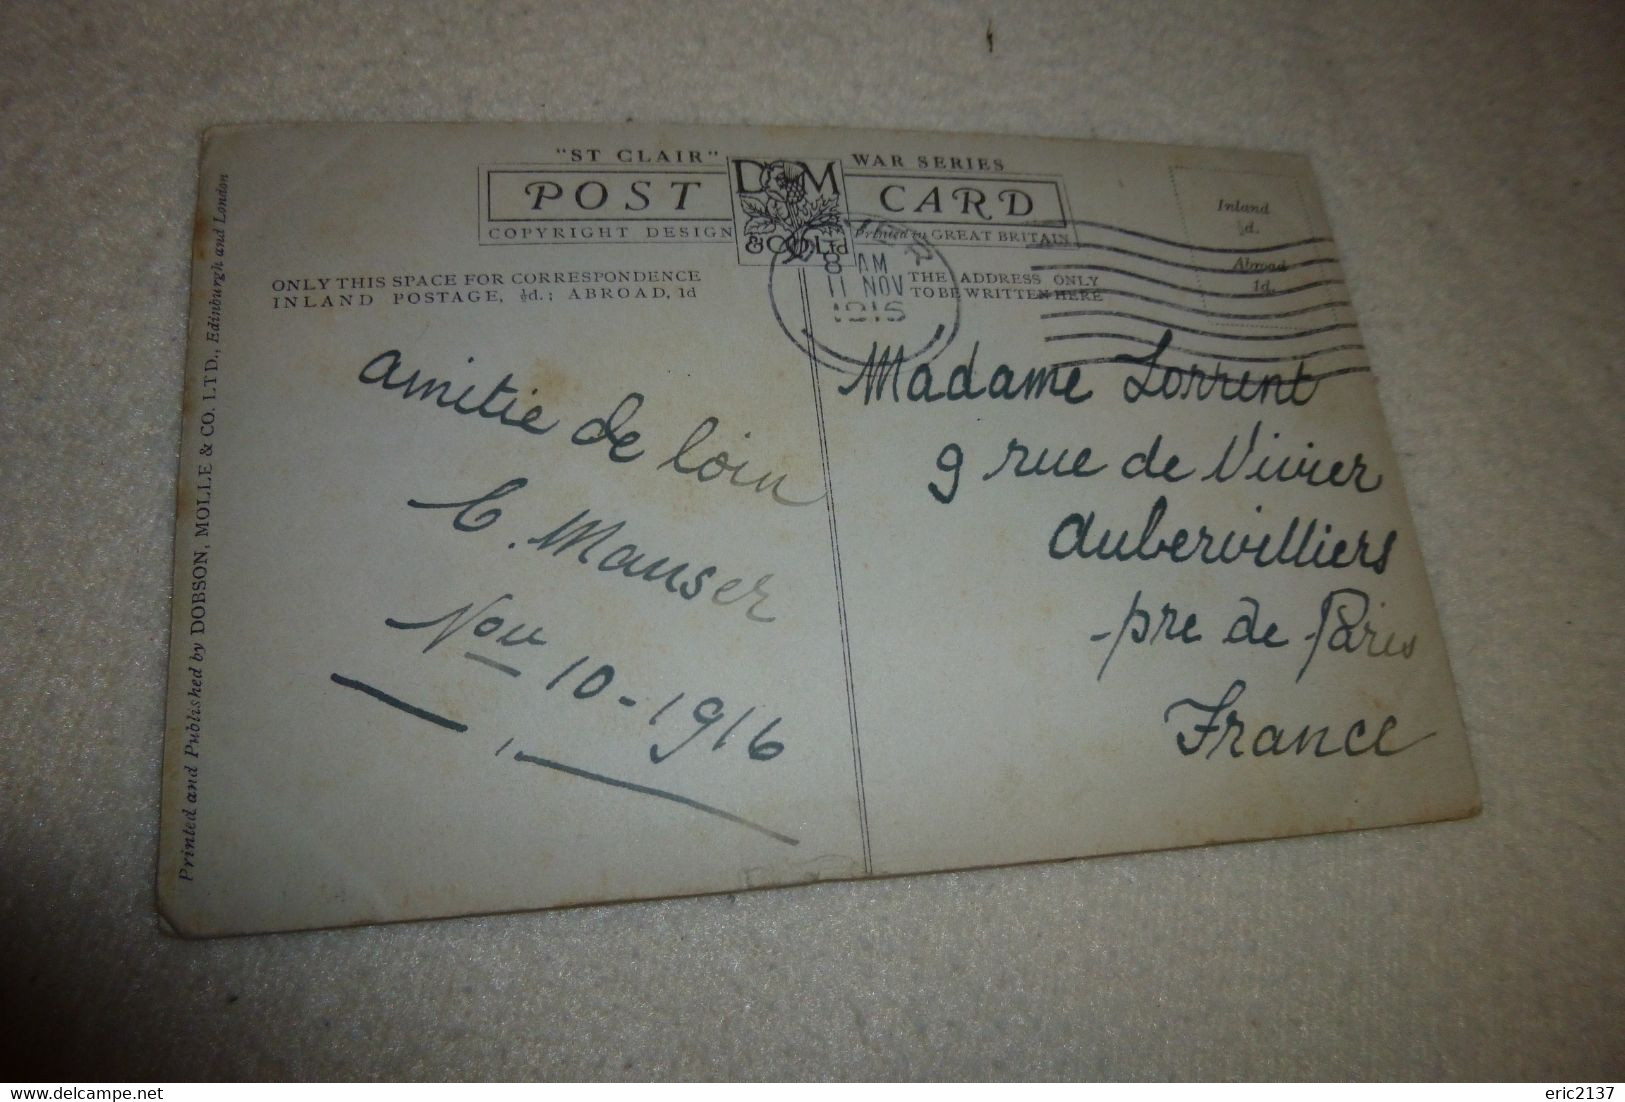 "ST CLAIR" WAR SERIES
POST CARD
D M & CO. Ltd
COPYRIGHT DESIGN Printed in GREAT BRITAIN
ONLY THIS SPACE FOR CORRESPONDENCE
INLAND POSTAGE, ½d.; ABROAD, 1d
THE ADDRESS ONLY
TO BE WRITTEN HERE
Inland
½d.
Abroad
1d.
8 AM
11 NOV
1916
amitie de loin
C. Manser
Nov 10-1916
Madame Lorrent
9 rue de Vivier
Aubervilliers
pre de Paris
France
Printed and Published by DOBSON, MOLLE & CO. LTD., Edinburgh and London
eric2137